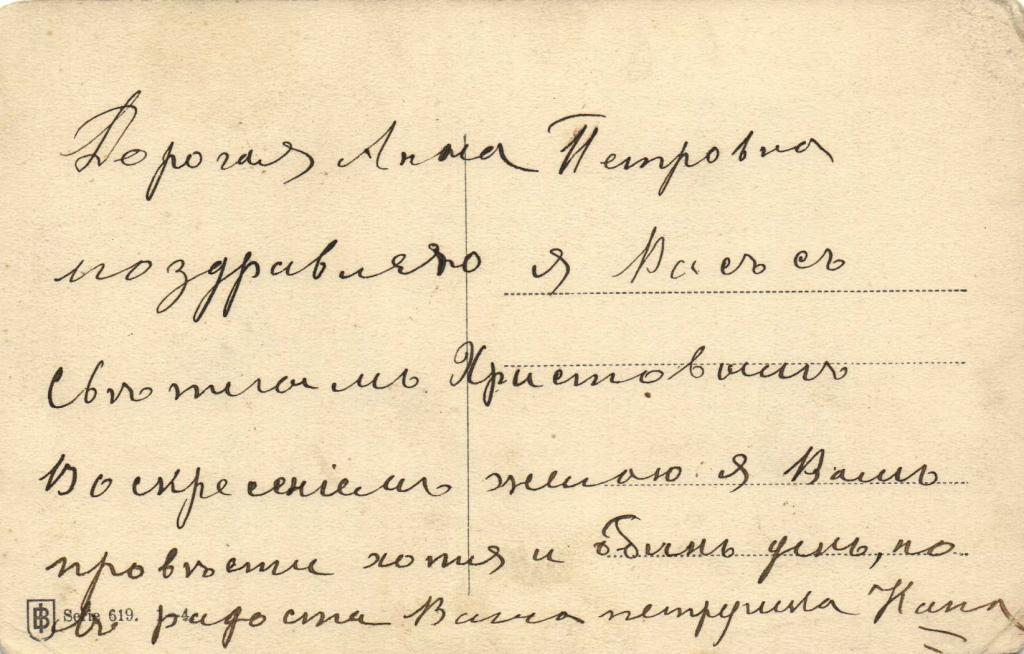 Дорогая Анна Петровна
поздравляю я Васъ съ
Свѣтлымъ Христовымъ
Воскресеніемъ желаю я Вамъ
провѣсти хотия и день, но
въ радости Ваша Капа
Serie 619. 1-4.